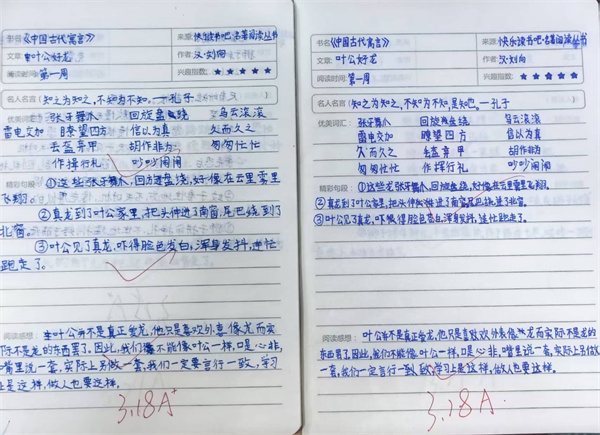 书名《中国古代寓言》 来源:快乐读书吧·名著阅读丛书
文章:叶公好龙 作者:汉·刘向
阅读时间:第一周 兴趣指数:★★★★★
名人名言(知之为知之,不知为不知。—孔子
优美词汇: 张牙舞爪 回旋盘绕 乌云滚滚
雷电交加 瞭望四方 信以为真 久而久之
丢盔弃甲 胡作非为 匆匆忙忙
作揖行礼 吵吵闹闹
精彩句段:①这些张牙舞爪,回旋盘绕,好像在云里雾里
飞翔。
②真龙到了叶公家里,把头伸进了南窗,尾巴绕到了
北窗。
③叶公见了真龙,吓得脸色发白,浑身发抖,连忙
跑走了。
阅读感想: 叶公并不是真正爱龙,他只是喜欢外表像龙而实
际不是龙的东西罢了。因此,我们不能像叶公一样,口是心非,
嘴里说一套,实际上另做一套,我们一定要言行一致,学习
上是这样,做人也要这样。
3.18A+
书名《中国古代寓言》 来源:快乐读书吧·名著阅读丛书
文章:叶公好龙 作者:汉·刘向
阅读时间:第一周 兴趣指数:★★★★★
名人名言(知之为知之,不知为不知,是知也。—孔子
优美词汇: 张牙舞爪 回旋盘绕 乌云滚滚
雷电交加 瞭望四方 信以为真
久而久之 丢盔弃甲 胡作非为
匆匆忙忙 作揖行礼 吵吵闹闹
精彩句段:①这些龙张牙舞爪,回旋盘绕,好像在云里雾里飞翔。
②真龙到了叶公家里,把头伸进了南窗,尾巴绕到了北窗。
③叶公见了真龙,吓得脸色苍白,浑身发抖,连忙跑走了。
阅读感想: 叶公并不是真正爱龙,他只是喜欢外表像龙而实际不是龙的
东西罢了。因此,我们不能像叶公一样,口是心非,嘴里说一套,实际上另做
一套,我们一定言行一致,学习上是这样,做人也要这样。
3.18A